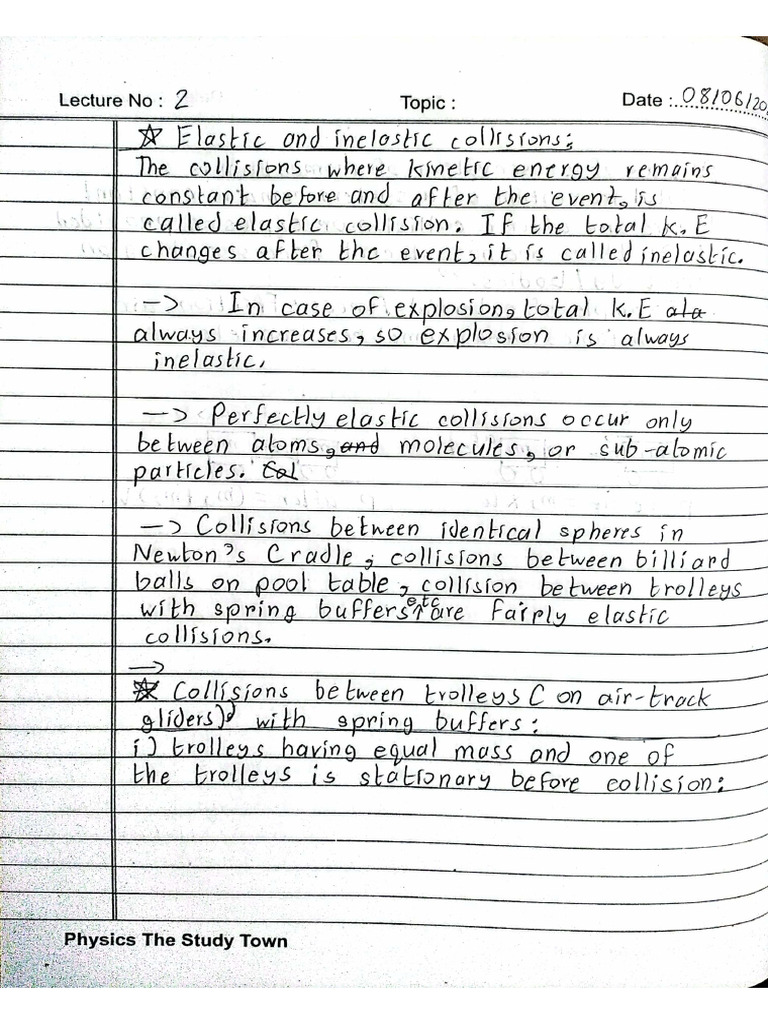 Lecture No : 2 Topic : Date : 08/06/20
☆ Elastic and inelastic collisions:
The collisions where kinetic energy remains
constant before and after the event, is
called elastic collision. If the total K.E
changes after the event, it is called inelastic.
—> In case of explosion, total K.E
always increases, so explosion is always
inelastic.
—> Perfectly elastic collisions occur only
between atoms, and molecules, or sub-atomic
particles.
—> Collisions between identical spheres in
Newton's Cradle, collisions between billiard
balls on pool table, collision between trolleys
with spring buffers etc are fairly elastic
collisions.
—>
☆ Collisions between trolleys (on air-track
gliders) with spring buffers:
i) trolleys having equal mass and one of
the trolleys is stationary before collision:
Physics The Study Town